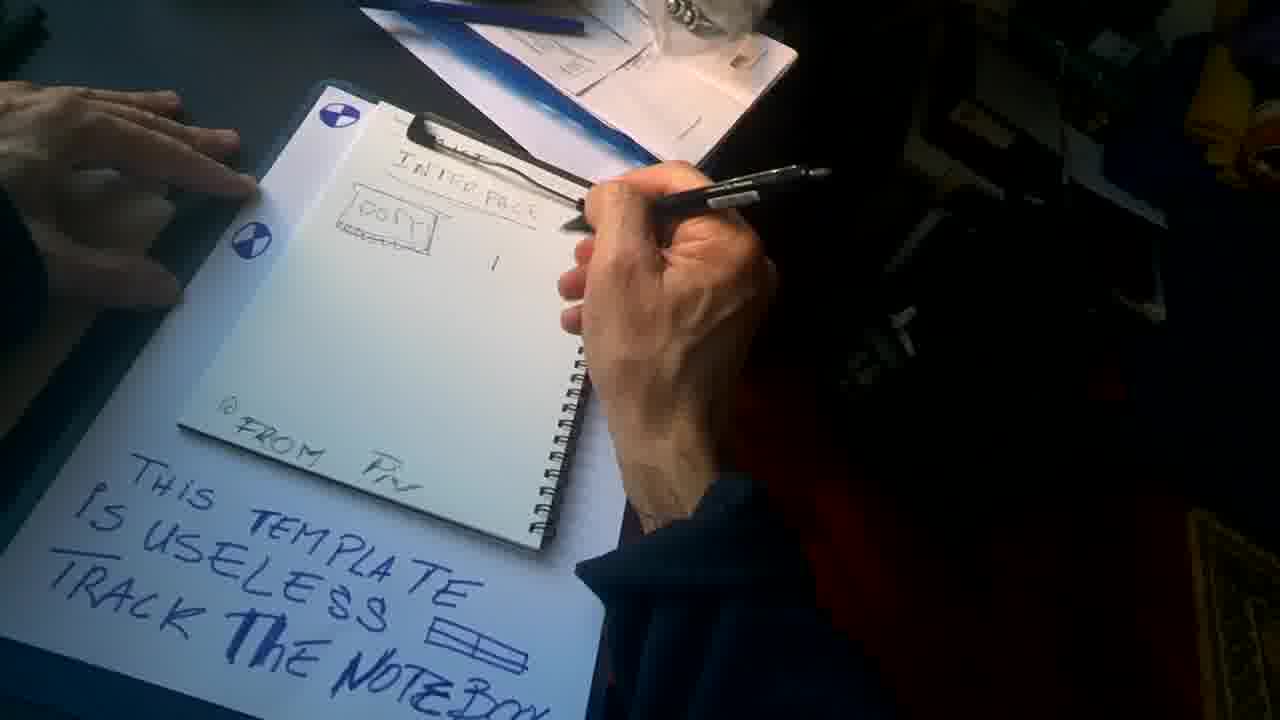 INTERFACE
FROM
THIS TEMPLATE
IS USELESS
TRACK THE NOTEBOO